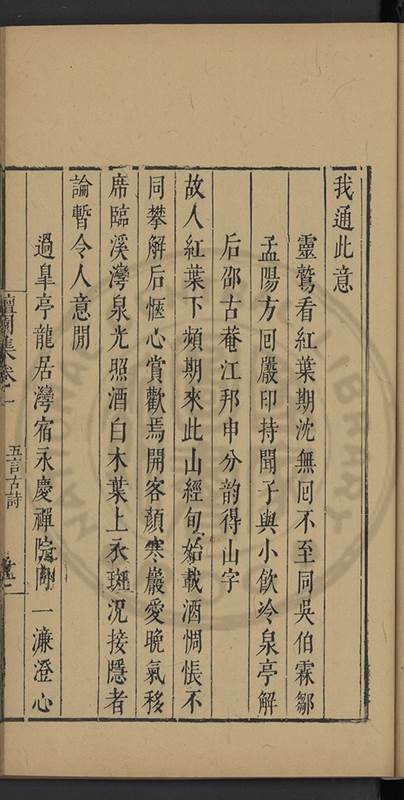 我通此意
靈鷲看紅葉期沈無回不至同吳伯霖鄒
孟陽方回嚴印持聞子與小飲冷泉亭解
后邵古菴江邦申分韵得山字
故人紅葉下頻期來此山經旬始載酒惆悵不
同攀解后愜心賞歡焉開客顏寒巖愛晚氣移
席臨溪灣泉光照酒白木葉上衣斑況接隱者
論暫令人意閒
過皐亭龍居灣宿永慶禪院同一濂澄心
檀園集卷一
五言古詩